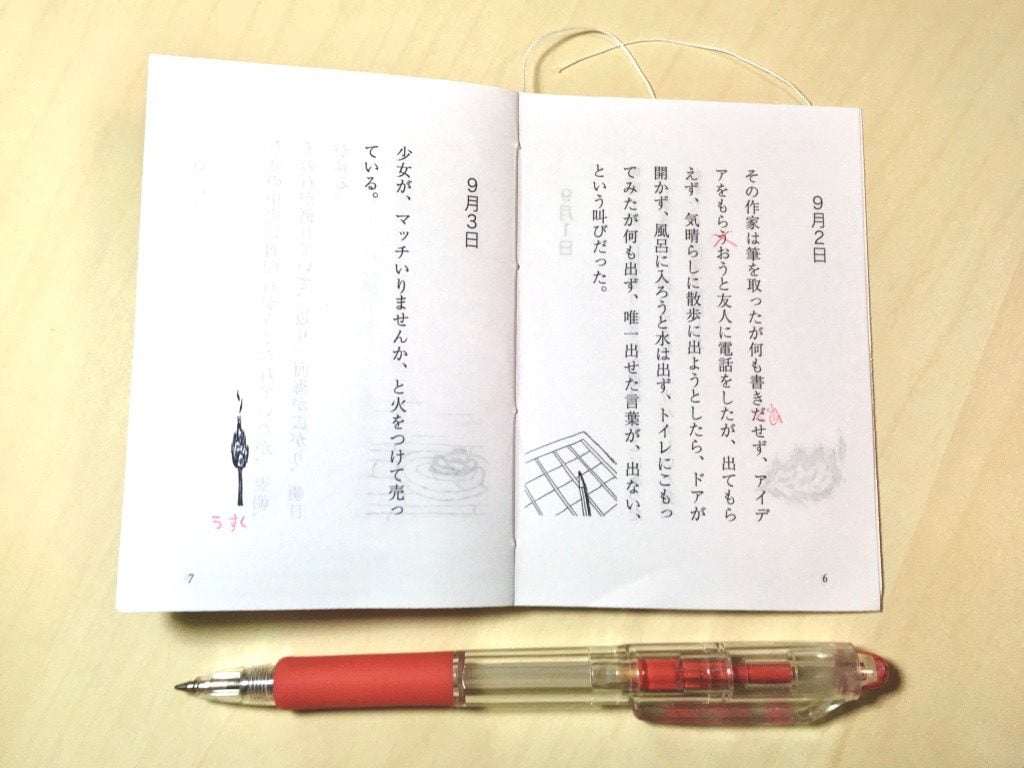 9月2日
その作家は筆を取ったが何も書きだせず、アイデ
アをもらうおうと友人に電話をしたが、出てもら
えず、気晴らしに散歩に出ようとしたら、ドアが
開かず、風呂に入ろうと水は出ず、トイレにこもっ
てみたが何も出ず、唯一出せた言葉が、出ない、
という叫びだった。
6
9月3日
少女が、マッチいりませんか、と火をつけて売っ
ている。
うすく
7
9月1日